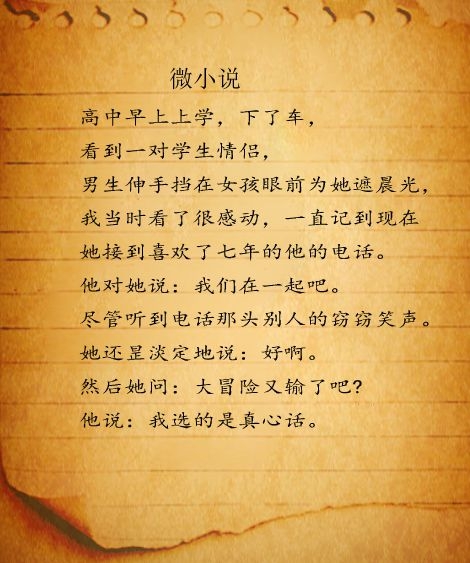 微小说
高中早上上学，下了车，
看到一对学生情侣，
男生伸手挡在女孩眼前为她遮晨光，
我当时看了很感动，一直记到现在
她接到喜欢了七年的他的电话。
他对她说：我们在一起吧。
尽管听到电话那头别人的窃窃笑声。
她还是淡定地说：好啊。
然后她问：大冒险又输了吧?
他说：我选的是真心话。